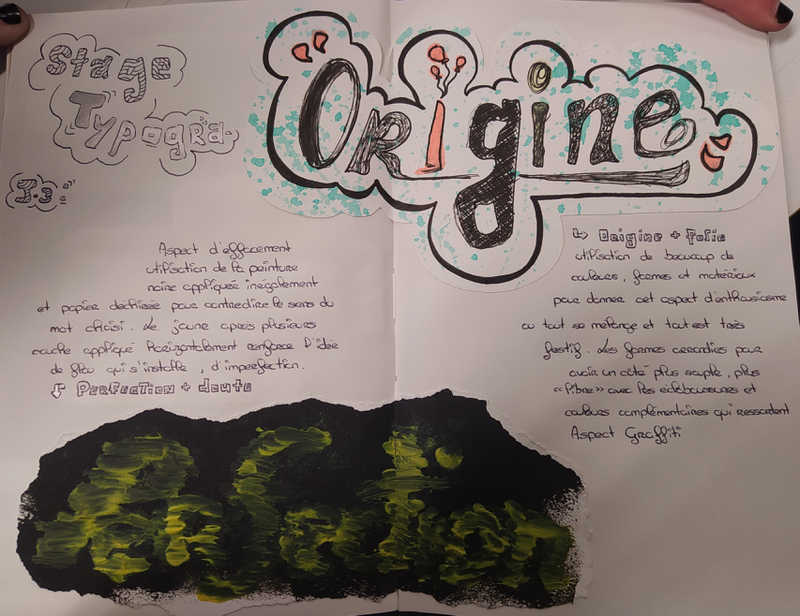 Stage
Typogra-
J.3:
Origine
Aspect d'effacement
utilisation de la peinture
noire appliquée inégalement
et papier déchirée pour contredire le sens du
mot choisi. Le jaune après plusieurs
couche appliqué horizontalement renforce l'idée
de flou qui s'installe, d'imperfection.
↳ Perfection + doute
Perfection
↳ Origine + Folie
utilisation de beaucoup de
couleurs, formes et matériaux
pour donner cet aspect d'enthousiasme
où tout se mélange et tout est très
festif. Les formes arrondies pour
avoir un côté plus souple, plus
"libre" avec les éclaboussures et
couleurs complémentaires qui ressortent
Aspect Graffiti